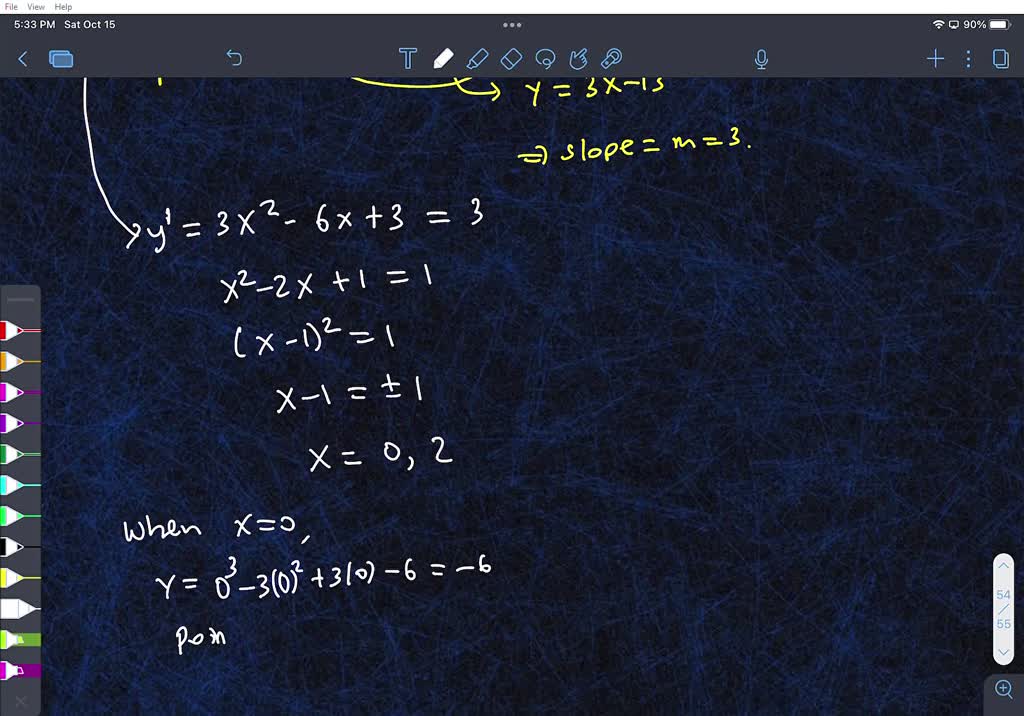 File View Help
5:33 PM Sat Oct 15
90%
T
y = 3x-13
⇒ slope = m = 3.
y' = 3x² - 6x + 3 = 3
x² - 2x + 1 = 1
(x - 1)² = 1
x - 1 = ± 1
x = 0, 2
When x = 0,
y = 0³ - 3(0)² + 3(0) - 6 = -6
Poin
54
/
55